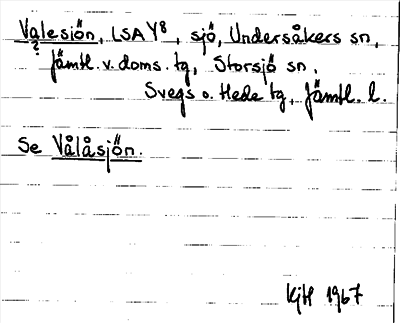 Valesjön, LSA Y8, sjö, Undersåkers sn,
?
Jämtl. v. doms. tg, Storsjö sn,
Svegs o. Hede tg, Jämtl. l.
Se Vålåsjön.
KjH 1967